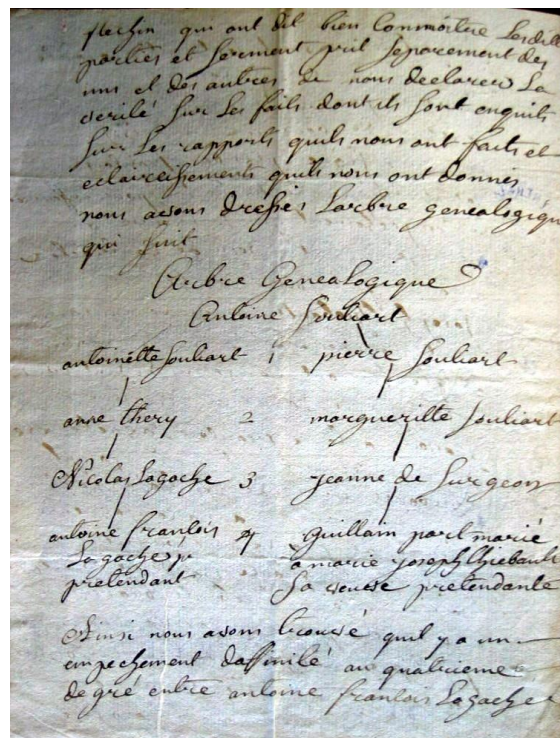 flechin qui ont dit bien Connoitre Lesdit
parties et Serment prit Separement des
uns et des autres de nous declarer La
verité Sur Les faits dont ils Sont enquis
Sur Les rapports quils nous ont faits et
eclaircissements quils nous ont donnes
nous avons dresses Larbre genealogiqu
qui Suit
Arbre Genealogique
Antoine Souliart
antoinette Souliart 1 pierre Souliart
anne thery 2 margueritte Souliart
Nicolas Lagache 3 jeanne de Surgeon
antoine francois 4 Guillain part marié
Lagache a marie joseph thiebault
pretendant Sa veuve pretendante
Ainsi nous avons trouvé quil y a un
empechement daffinité au quatrieme
degré entre antoine francois Lagache